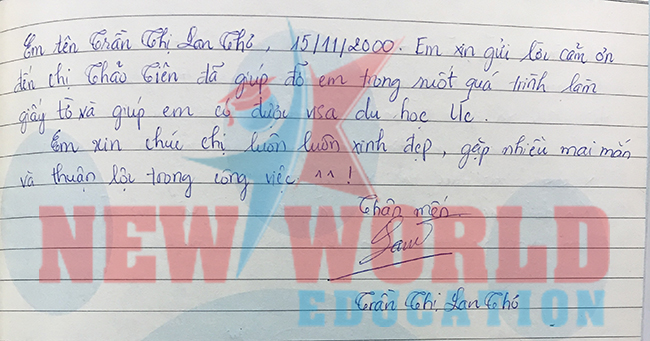 Em tên Trần Thị Lan Thó, 15/11/2000. Em xin gửi lời cảm ơn
đến chị Thảo Tiên đã giúp đỡ em trong suốt quá trình làm
giấy tờ và giúp em có được visa du học Úc.
Em xin chúc chị luôn luôn xinh đẹp, gặp nhiều mai mắn
và thuận lợi trong công việc ^^!
Thân mến
Trần Thị Lan Thó
NEW WORLD
EDUCATION